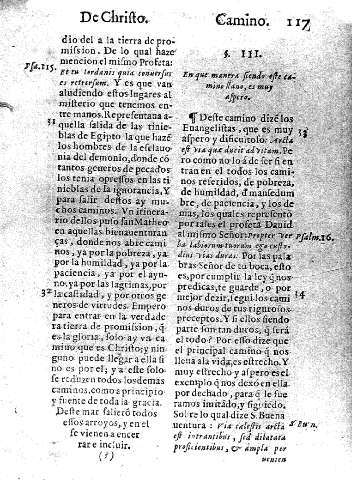 De Christo.
Camino. 117
dio del a la tierra de pro-
mission. De lo qual haze
mencion el mismo Profeta:
Psa. 115.
et tu Iordanis quia conuersus
es retrorsum. Y es que van
aludiendo estos lugares al
misterio que tenemos en-
tre manos. Representan a-
31
quella salida de las tinie-
blas de Egipto la que hazẽ
los hombres de la esclauo-
nia del demonio, donde cõ
tantos generos de pecados
los tenia opressos en las ti
nieblas de la ignorancia, Y
para salir destos ay mu-
chos caminos. Vn itinera-
rio dellos puso san Matheo
en aquellas bienauenturan
ças, donde nos abre cami
nos, ya por la pobreza, ya
por la humildad, ya por la
paciencia, ya por el ayu-
no, ya por las lagrimas, por
la castidad, y por otros ge
32
neros de virtudes. Empero
para entrar en la verdade
ra tierra de promission, q̃
es la gloria, solo ay vn ca-
mino que es Christo; y nin
guno puede llegar a ella si
no es por el; y a este solo
se reduzen todos los demas
caminos, como a principio
y fuente de toda la gracia.
Deste mar salierõ todos
essos arroyos, y en el
se vienen a encer
rar e incluir.
(§)
§. III.
En que manera siendo este ca-
mino llano, es muy
aspero.
¶ Deste camino dizẽ los
33
Euangelistas, que es muy
aspero y dificultoso: Arcta
est via quæ ducit ad vitam. Pe
ro como no lo à de ser si en
tran en el todos los caminos
referidos, de pobreza,
de humildad, d̃ mansedum
bre, de paciencia, y los de
mas, los quales representò
por tales el profeta Dauid
al mismo Señor: Propter ver
Psalm. 16.
ba labiorum tuorum ego custo-
diui vias duras. Por las pala
bras Señor de tu boca, esto
es, por cumplir la ley q̃ nos
predicas, te guardè, o por
mejor dezir, segui los cami
34
nos duros de tus rigurosos
preceptos. Y si ellos siendo
parte son tan duros, q̃ serà
el todo? Por esso dize que
el principal camino q̃ nos
lleua a la vida, es estrecho. Y
muy estrecho y aspero es el
exemplo q̃ nos dexò en ella
por dechado, para q̃ le fue
ramos imitãdo, y siguiẽdo.
Sobre lo qual dize S. Buena
uentura: Via cælestis arcta
S. Buen.
est intrantibus, sed dilatata
proficientibus, & ampla per
uenien